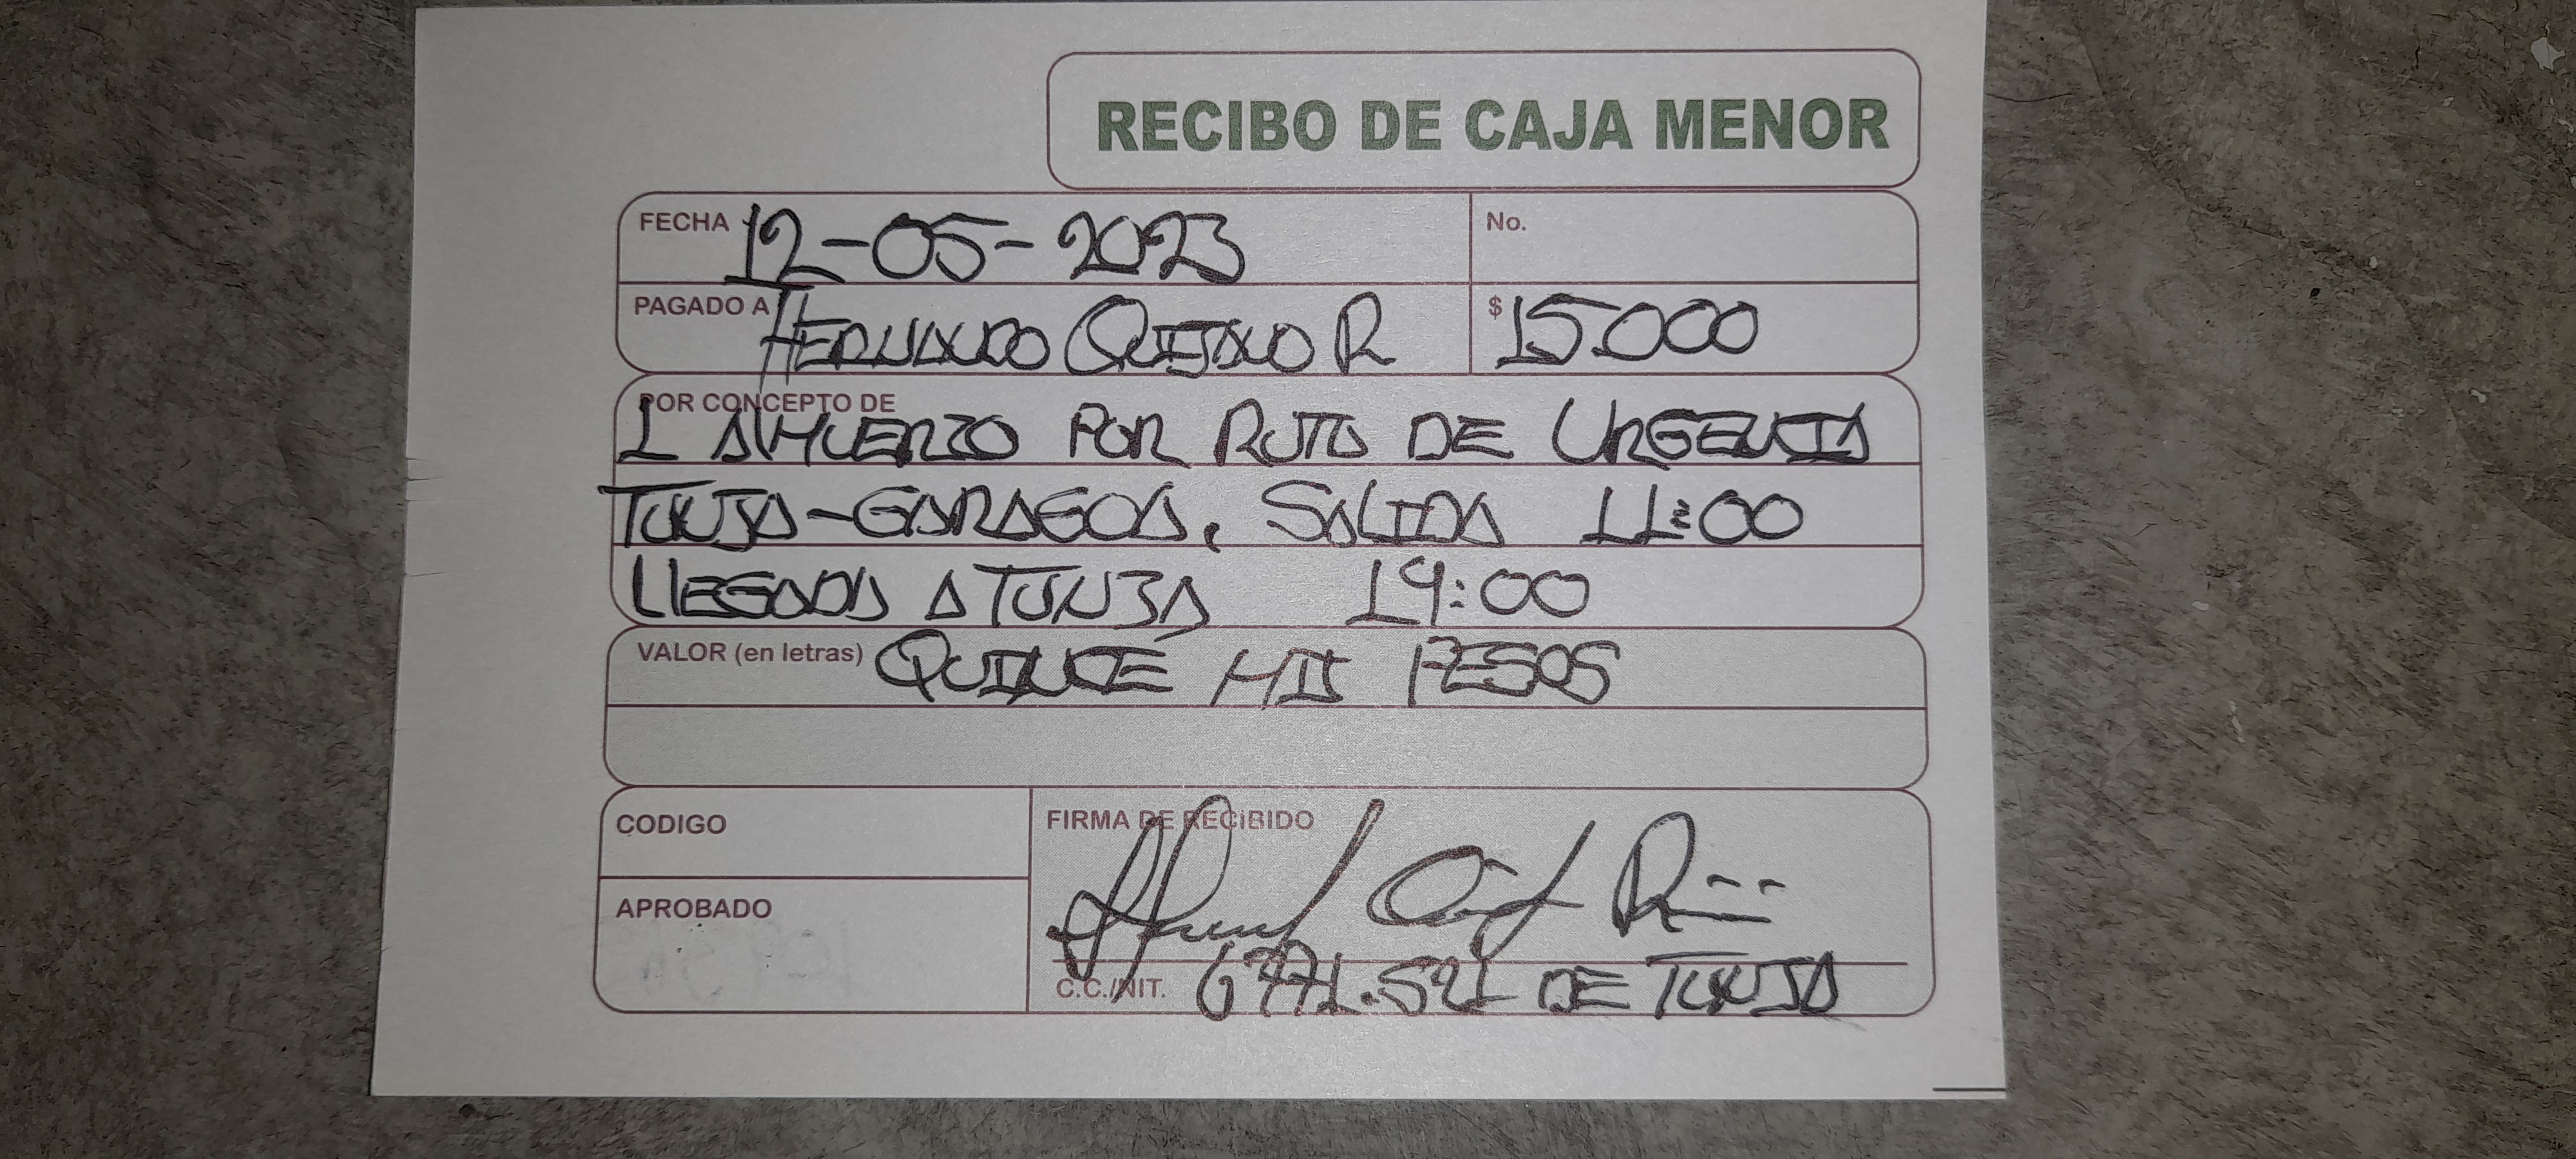 RECIBO DE CAJA MENOR
FECHA 12-05-2023 No.
PAGADO A HERNANDO QUIJANO R $ 15.000
POR CONCEPTO DE
1 AlMUERZO POR RUTA DE URGENCIA
TUNJA-GARAGOA. SALIDA 11:00
llEGADA A TUNJA 19:00
VALOR (en letras) QUINCE MIL PESOS
CODIGO
FIRMA DE RECIBIDO
APROBADO
C.C./NIT. 6771.521 DE TUNJA